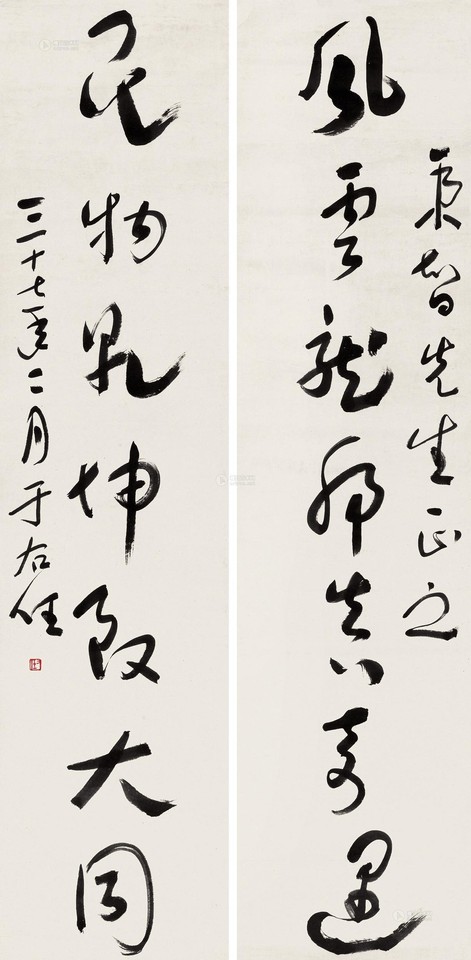 風雲龍虎真奇遇
秉智先生正之
民物乾坤致大同
三十七年二月于右任